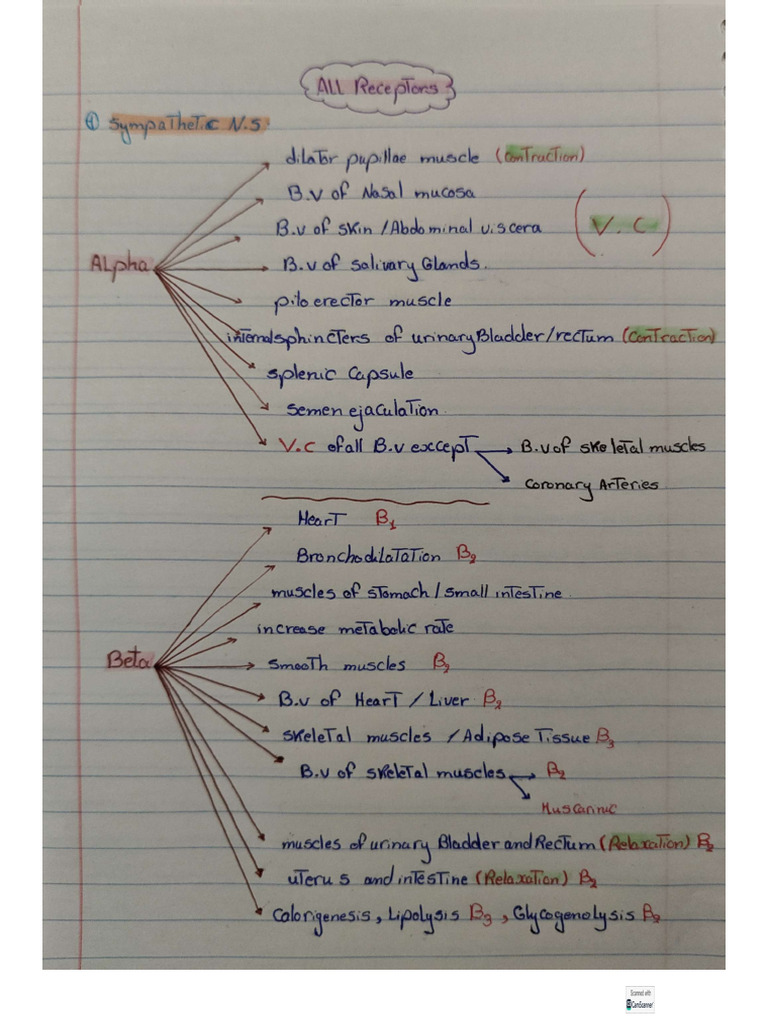 All Receptors
① Sympathetic N.S.
dilator pupillae muscle (contraction)
B.v of Nasal mucosa
B.v of skin / Abdominal viscera
(V.C)
Alpha
B.v of salivary Glands.
piloerector muscle
internal sphincters of urinary Bladder / rectum (contraction)
splenic Capsule
semen ejaculation.
V.C of all B.v except B.v of skeletal muscles
coronary Arteries
Heart B1
Bronchodilatation B2
muscles of stomach / small intestine.
increase metabolic rate
Beta
smooth muscles B2
B.v of Heart / Liver B2
skeletal muscles / Adipose Tissue B3
B.v of skeletal muscles B2
Muscarinic
muscles of urinary Bladder and Rectum (Relaxation) B2
uterus and intestine (Relaxation) B2
calorigenesis, Lipolysis B3, Glycogenolysis B2
Scanned with
CamScanner